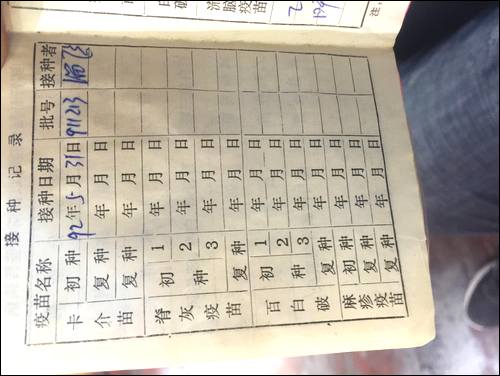 接种记录
疫苗名称 接种日期 批号 接种者
卡介苗 初种 92年5月31日 911213
复种 年月日
复种 年月日
脊灰疫苗 初种 1 年月日
2 年月日
3 年月日
复种 年月日
百白破 初种 1 年月日
2 年月日
3 年月日
复种 年月日
麻疹疫苗 初种 年月日
复种 年月日
复种 年月日
疫苗
注